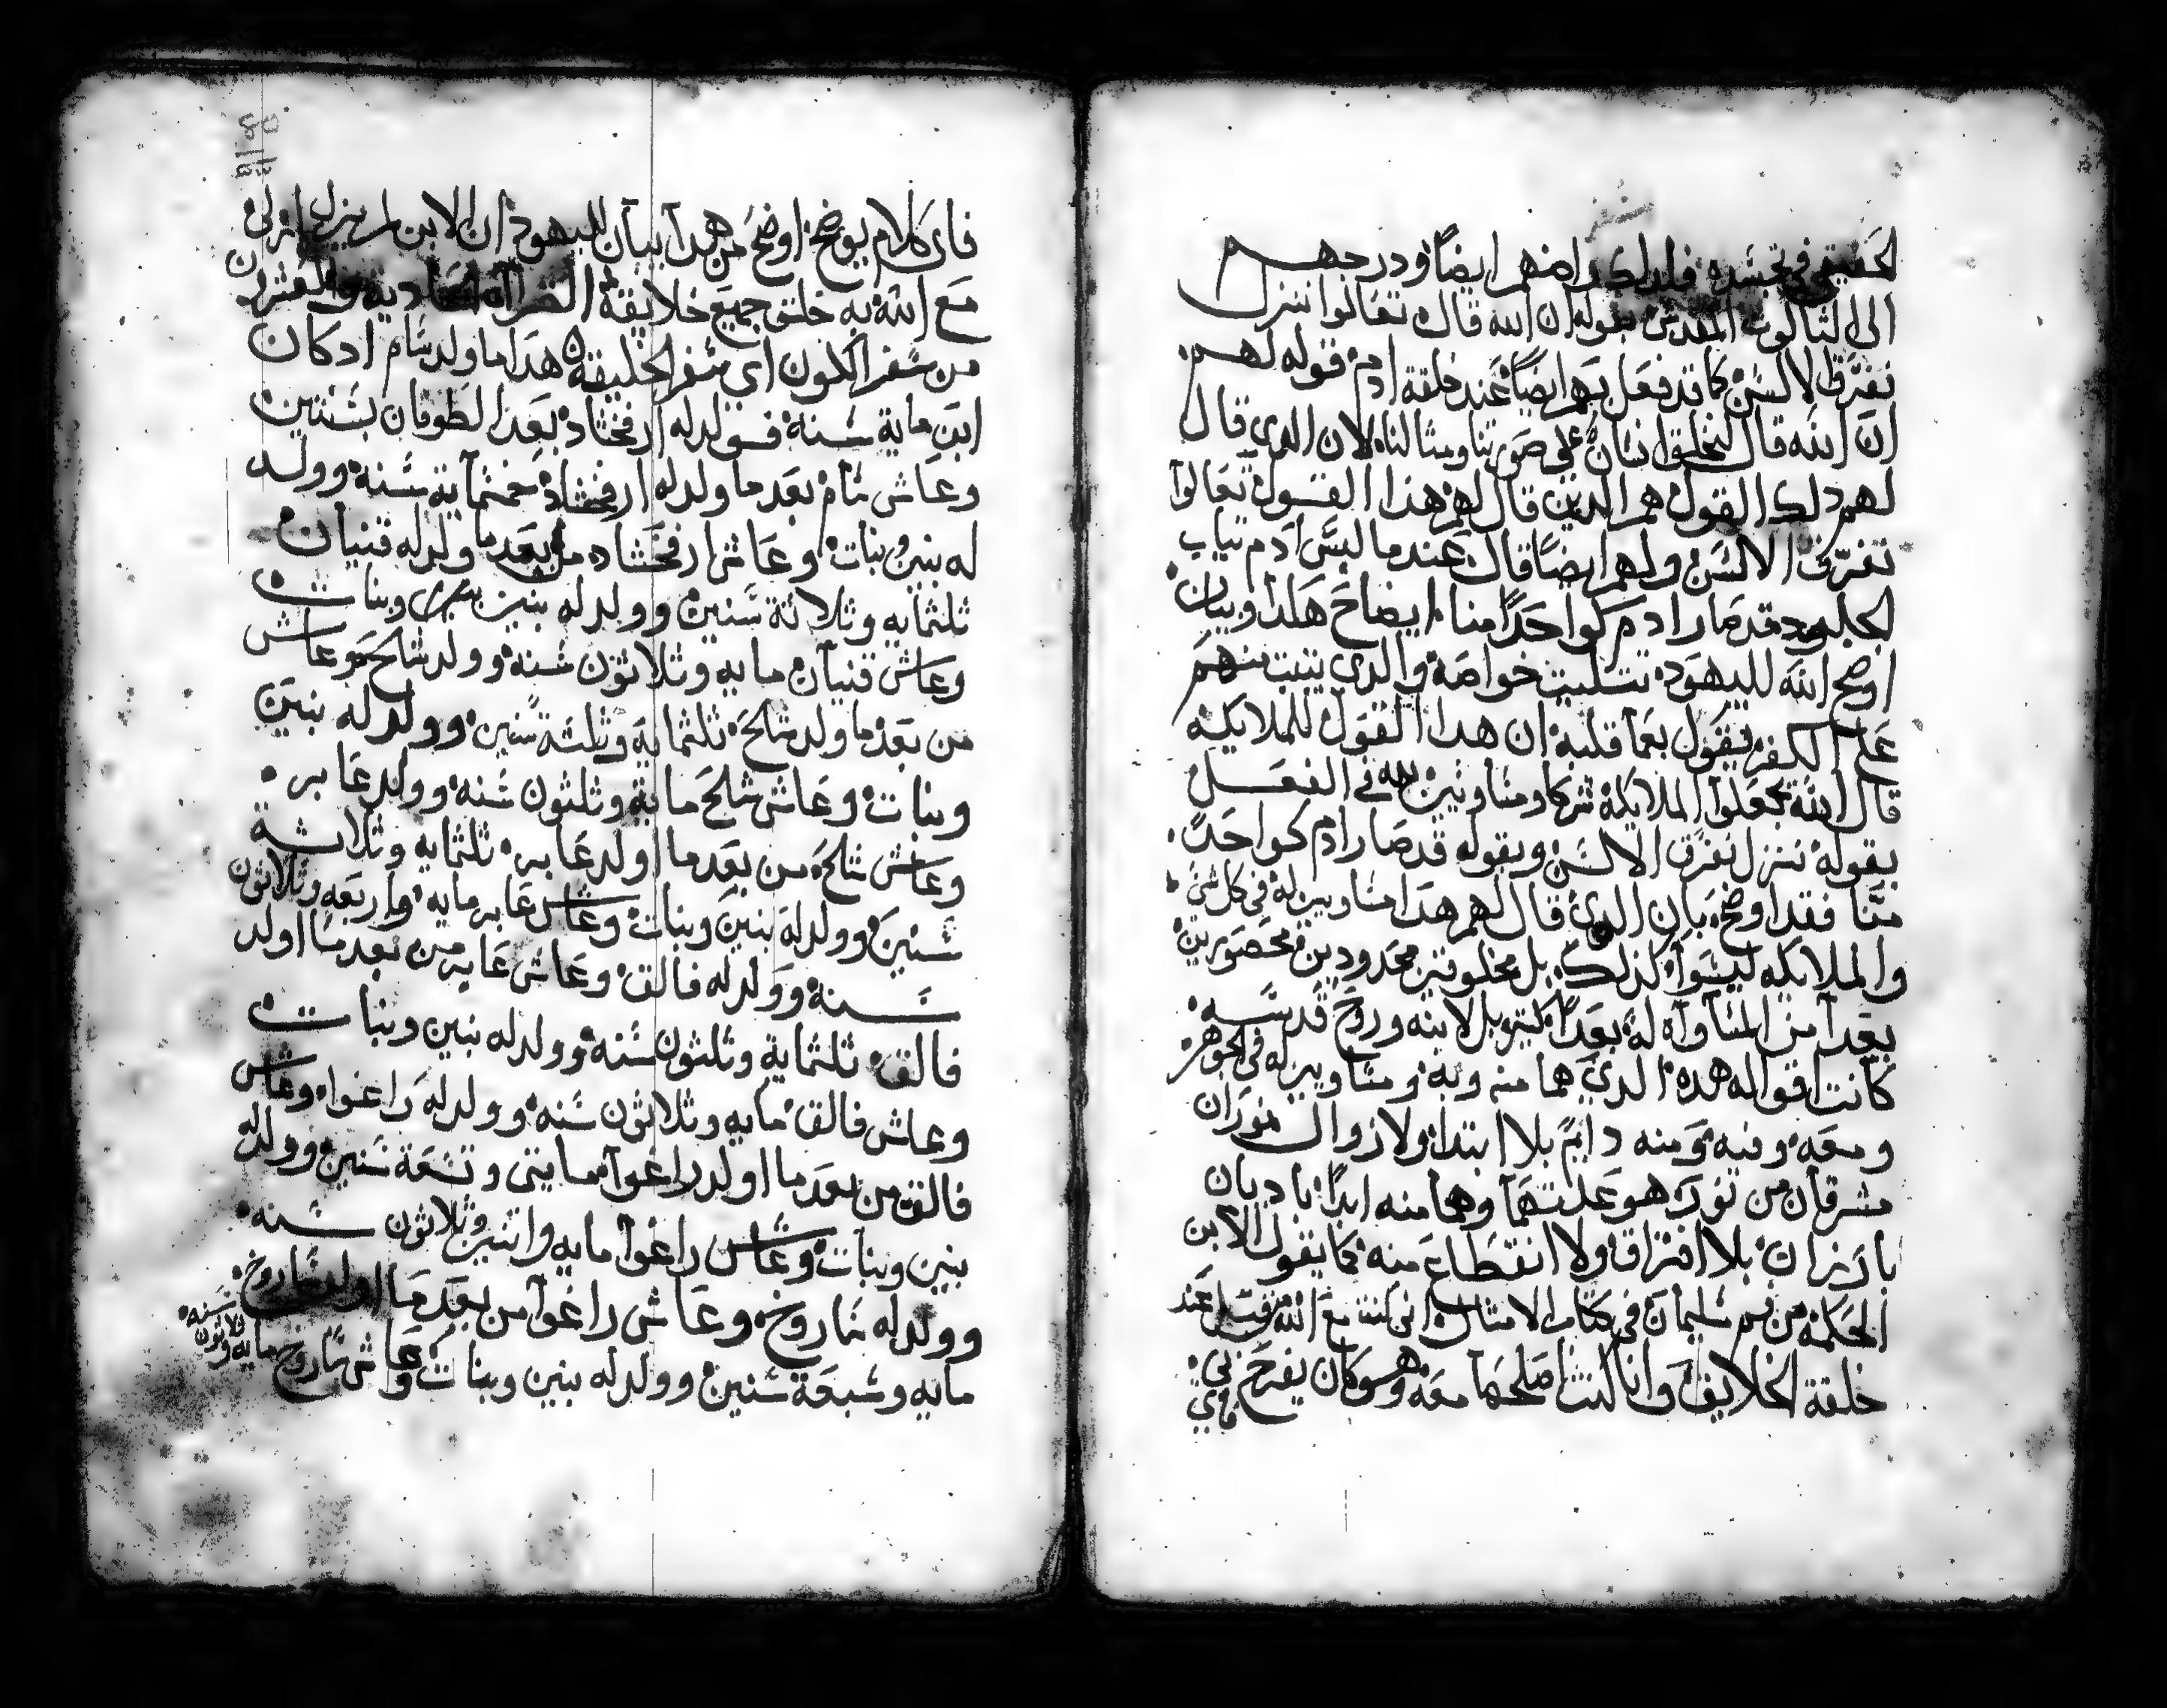 الحقيقي في تجسده فلدلك اضهر ايضا ودرجهم
الى الثالوث المقدس بقوله ان الله قال تعالوا ننزل
نفرق الالسن كما قد فعل بهم ايضا عند خلقة ادم قوله لهم
ان الله قال لنخلق انسان على صورتنا ومثالنا لان الدي قال
لهم دلك القول هم الدين قال لهم هذا القول تعالوا
نفرق الالسن ولهم ايضا قال عندما لبس ادم تياب
الجلود قد صار ادم كواحدا منا ايضاح هدا وبيان
اوضح الله لليهود تتليت خواصه والدي يتبت منهم
على الكفر يقول بعما قلبه ان هدا القول للملايكه
قال الله يجعلوا الملايكة شركا ومساويين لله في الفعل
بقوله ننزل نفرق الالسن وبقوله قد صار ادم كواحدا
منا فقد اوضح بان الدي قال لهم هدا مساويين له في كل شي
والملايكه ليسوا كذلك بل مخلوقين محدودين محصورين
بعدا من المساواه له بعدا كتير بل لابنه وروح قدسه
كانت اقواله هده الدي هما منه وبه ومساويين له في الجوهر
ومعه وفيه ومنه دايم بلا ابتدا ولا زوال نوران
مشرقان من نور هو علتهما وهما منه ابدا باديان
بارزان بلا افتراق ولا انقطاع منه كما يقول الابن
الحكمة من فم سليمان في كتاب الامثال اني كنت مع الله قبل عند
خلقة الخلايق وانا كنت اصلحها معه وهو كان يفرح بي
فاي كلام يوضح اوضح من هدا بيان لليهود ان الابن لم يزل ازلي
مع الله به خلق جميع خلايقه القراه الحاديه والعشرون
من سفر الكون اي سفر الخليقة هدا ما ولد سام ادكان
ابن ماية سنه فولد له ارفخشاد بعد الطوفان بسنتين
وعاش سام بعد ما ولد له ارفخشاد خمسماية سنه وولد
له بنين وبنات وعاش ارفخشاد من بعد ما ولد له قنيان
ثلثمايه وثلاثة سنين وولد له بنين وبنات
وعاش قنيان مايه وثلاثون سنه وولد شالح وعاش
من بعد ما ولد شالح ثلثماية وثلثة سنين وولد له بنين
وبنات وعاش شالح ماية وثلثون سنه وولد عابر
وعاش شالح من بعد ما اولد عابر ثلثمايه وثلاثة
سنين وولد له بنين وبنات وعاش عابر مايه واربعه وثلاثون
سنه وولد له فالق وعاش عابر من بعد ما اولد
فالق ثلثماية وثلثون سنه وولد له بنين وبنات
وعاش فالق مايه وثلاثون سنه وولد له راغوا وعاش
فالق من بعد ما اولد راغوا مايتى وتسعة سنين وولد له
بنين وبنات وعاش راغوا مايه واتنين وثلاثون سنه
وولد له ساروخ وعاش راغوا من بعد ما اولد ساروخ
مايه وسبعة سنين وولد له بنين وبنات وعاش ساروخ مايه وثلاثون سنه